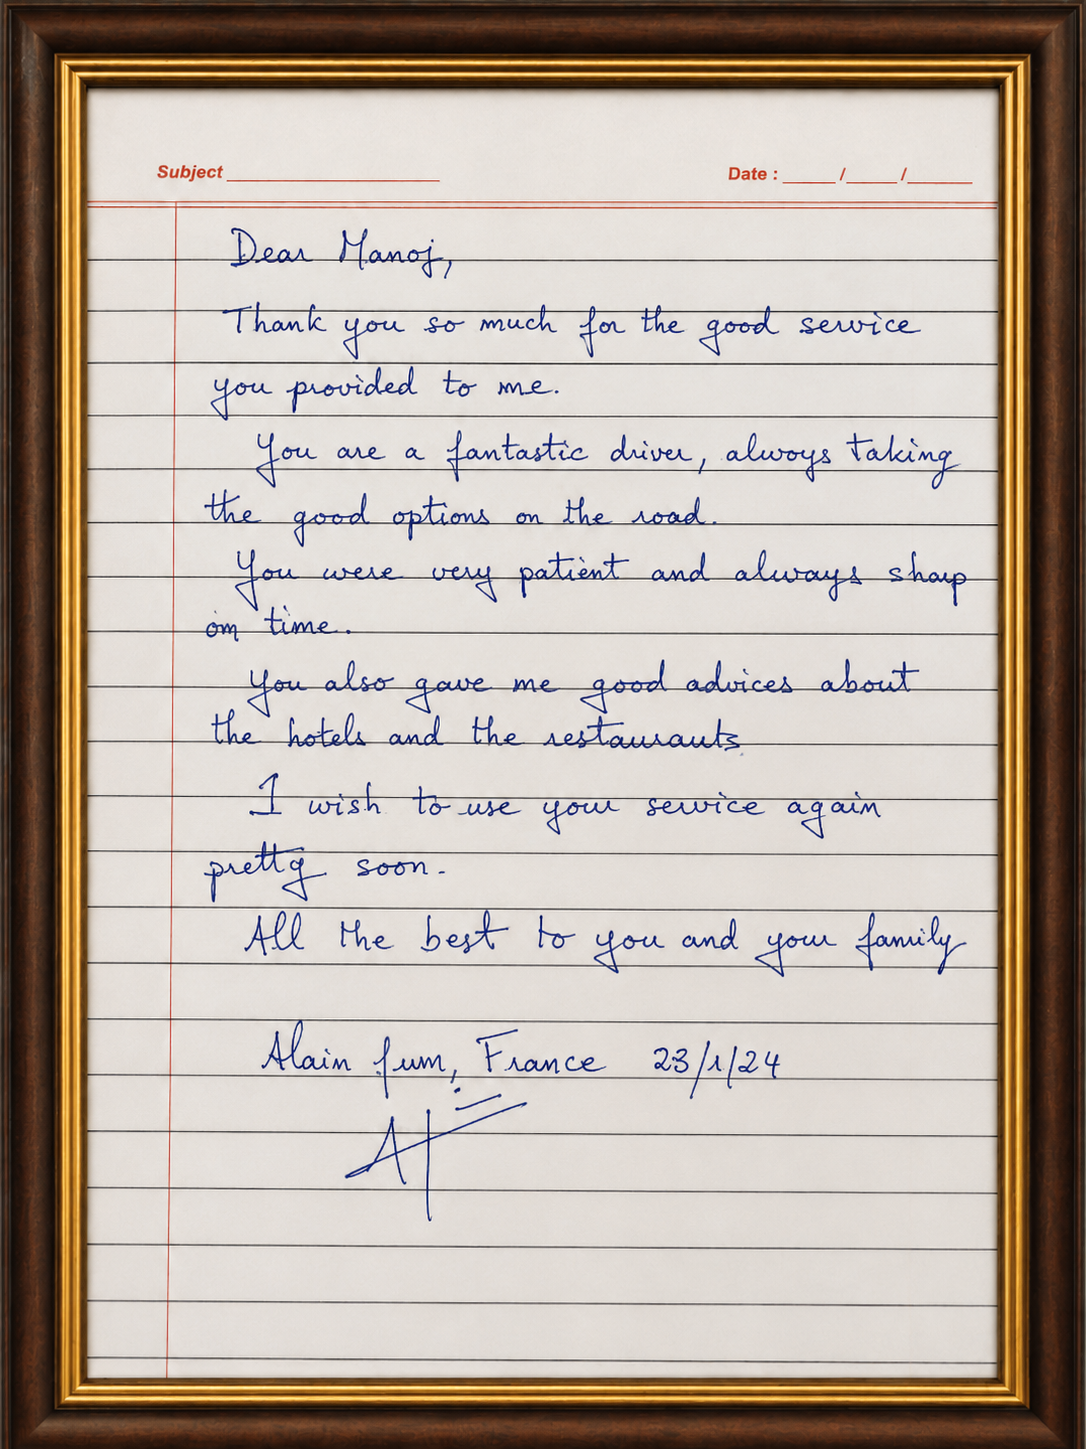 Subject
Date : / /
Dear Manoj,
Thank you so much for the good service
you provided to me.
You are a fantastic driver, always taking
the good options on the road.
You were very patient and always sharp
on time.
You also gave me good advices about
the hotels and the restaurants
I wish to use your service again
pretty soon.
All the best to you and your family
Alain France 23/1/24